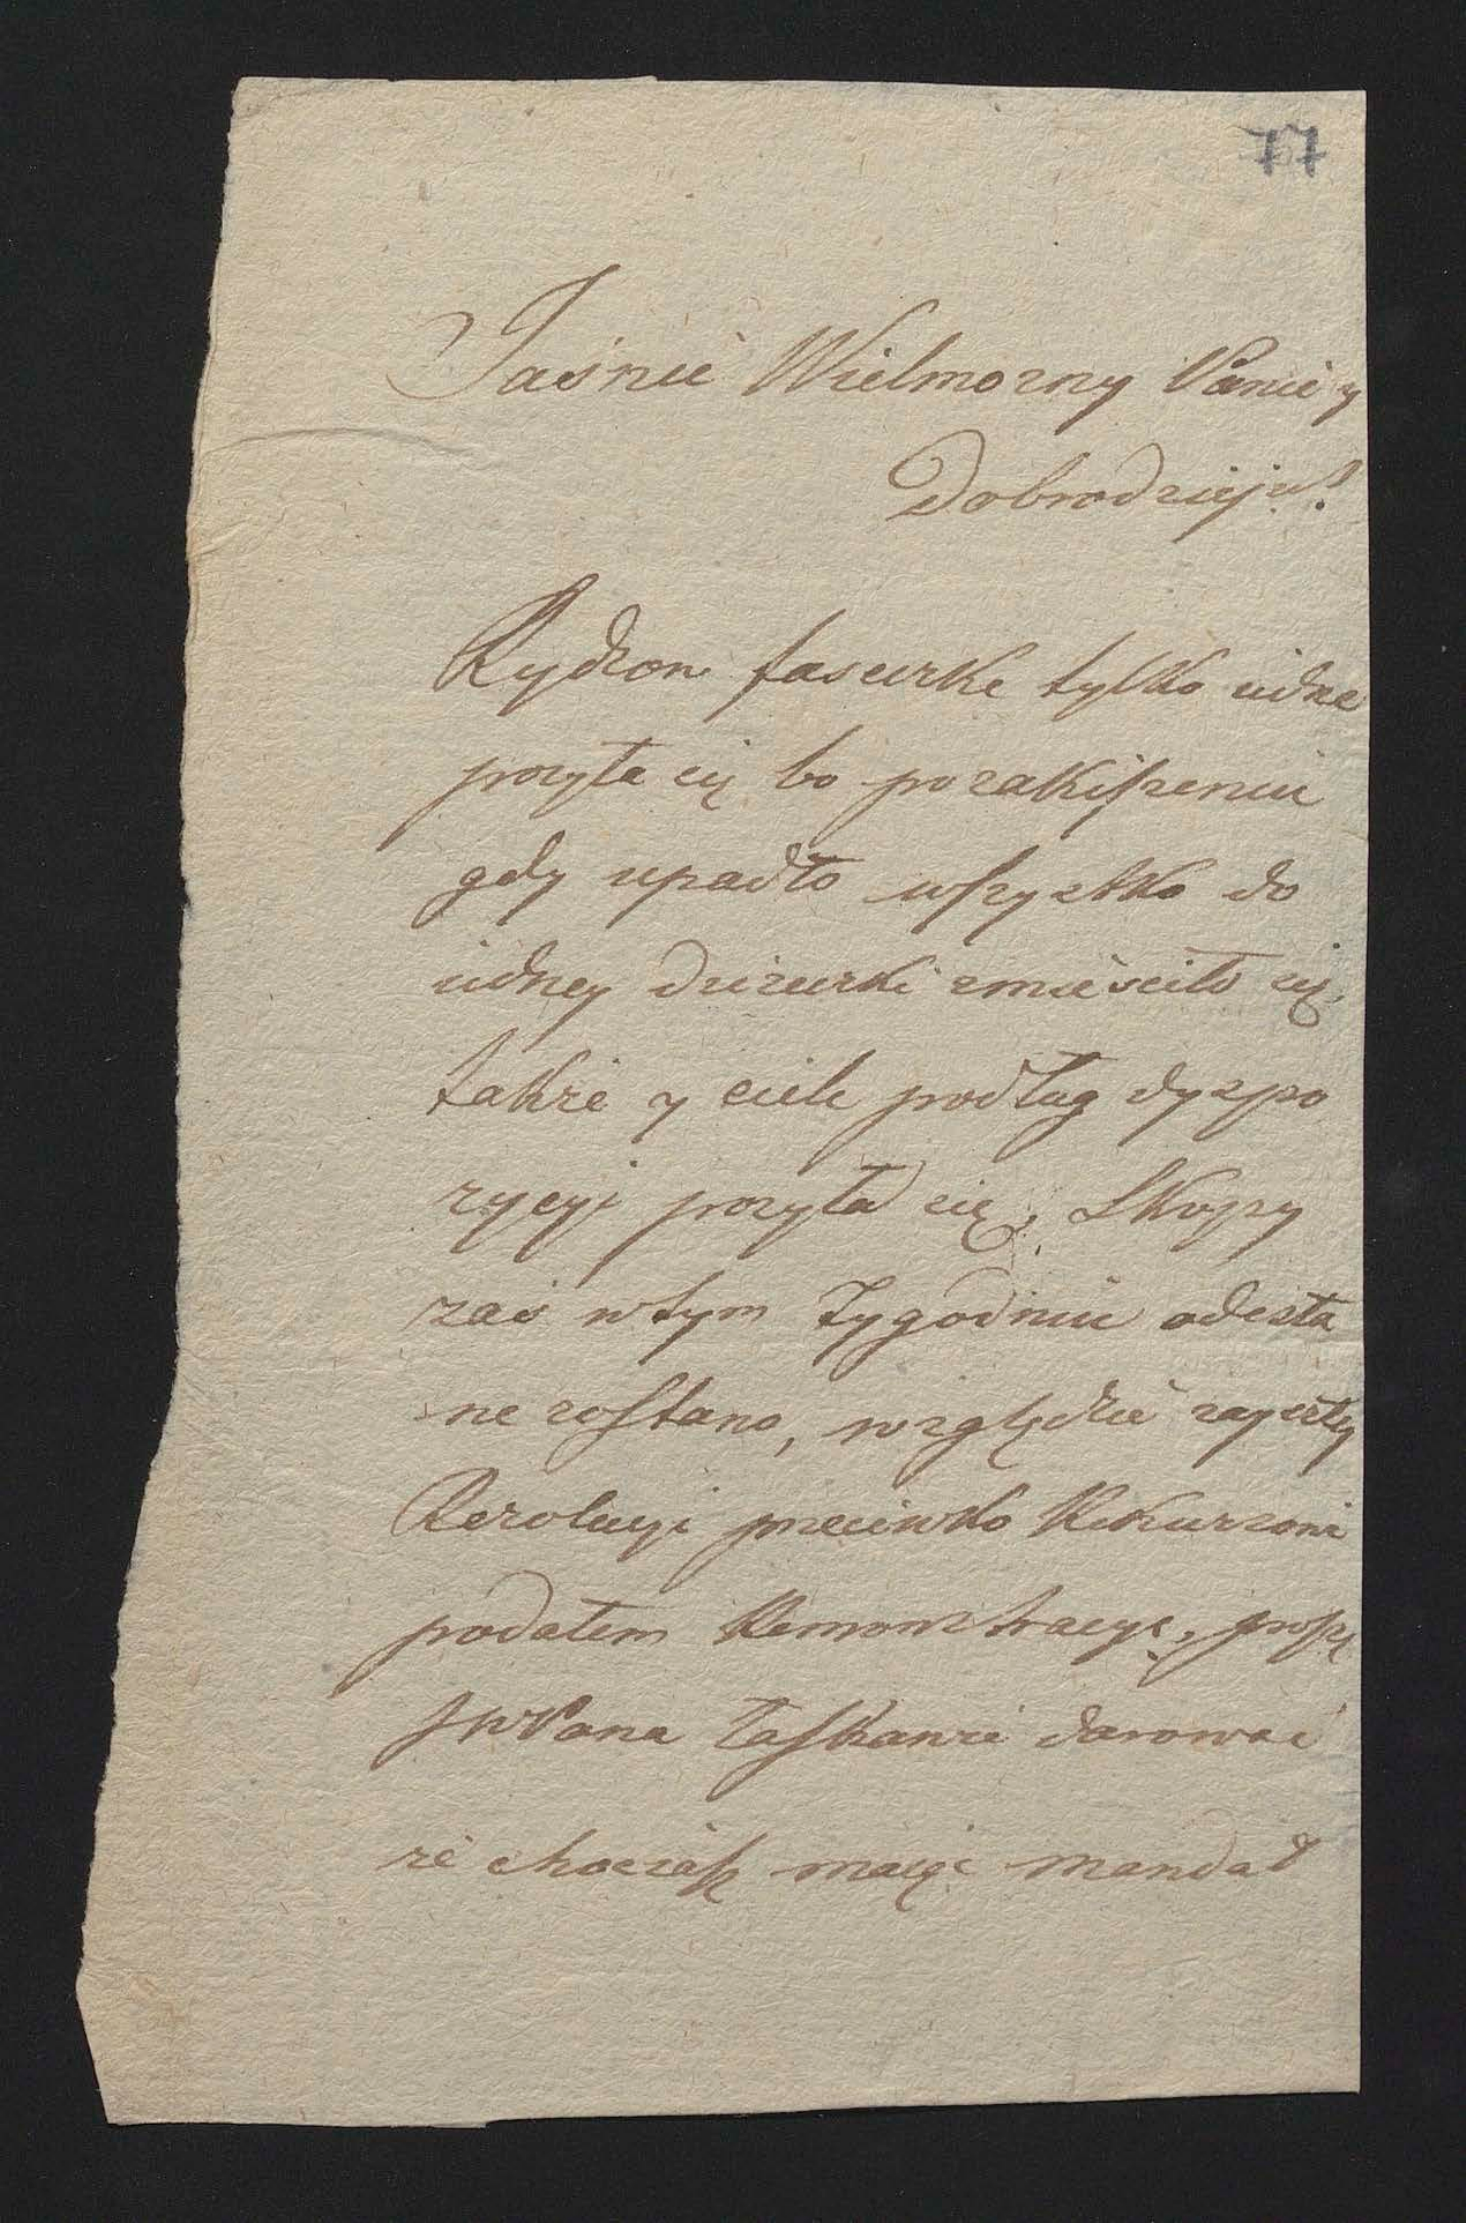 77
Jaśnie Wielmozny Panie y
Dobrodzieju!
Rydzow faseczke tylko iedne
posyła się bo po zakiszeniu
gdy upadło wszystko do
iedney dzieżurki zmieściło się,
także y ciele podług dyspo
zycyi posyła się, Skopy
zaś w tym Tygodniu odesła
ne zostano, względzie zaszłey
Rezolucyi przeciwko Rekurzowi
podałem Remonstracye, proszę
JWPana łaskawie darować
że chociasz maiąc mandad